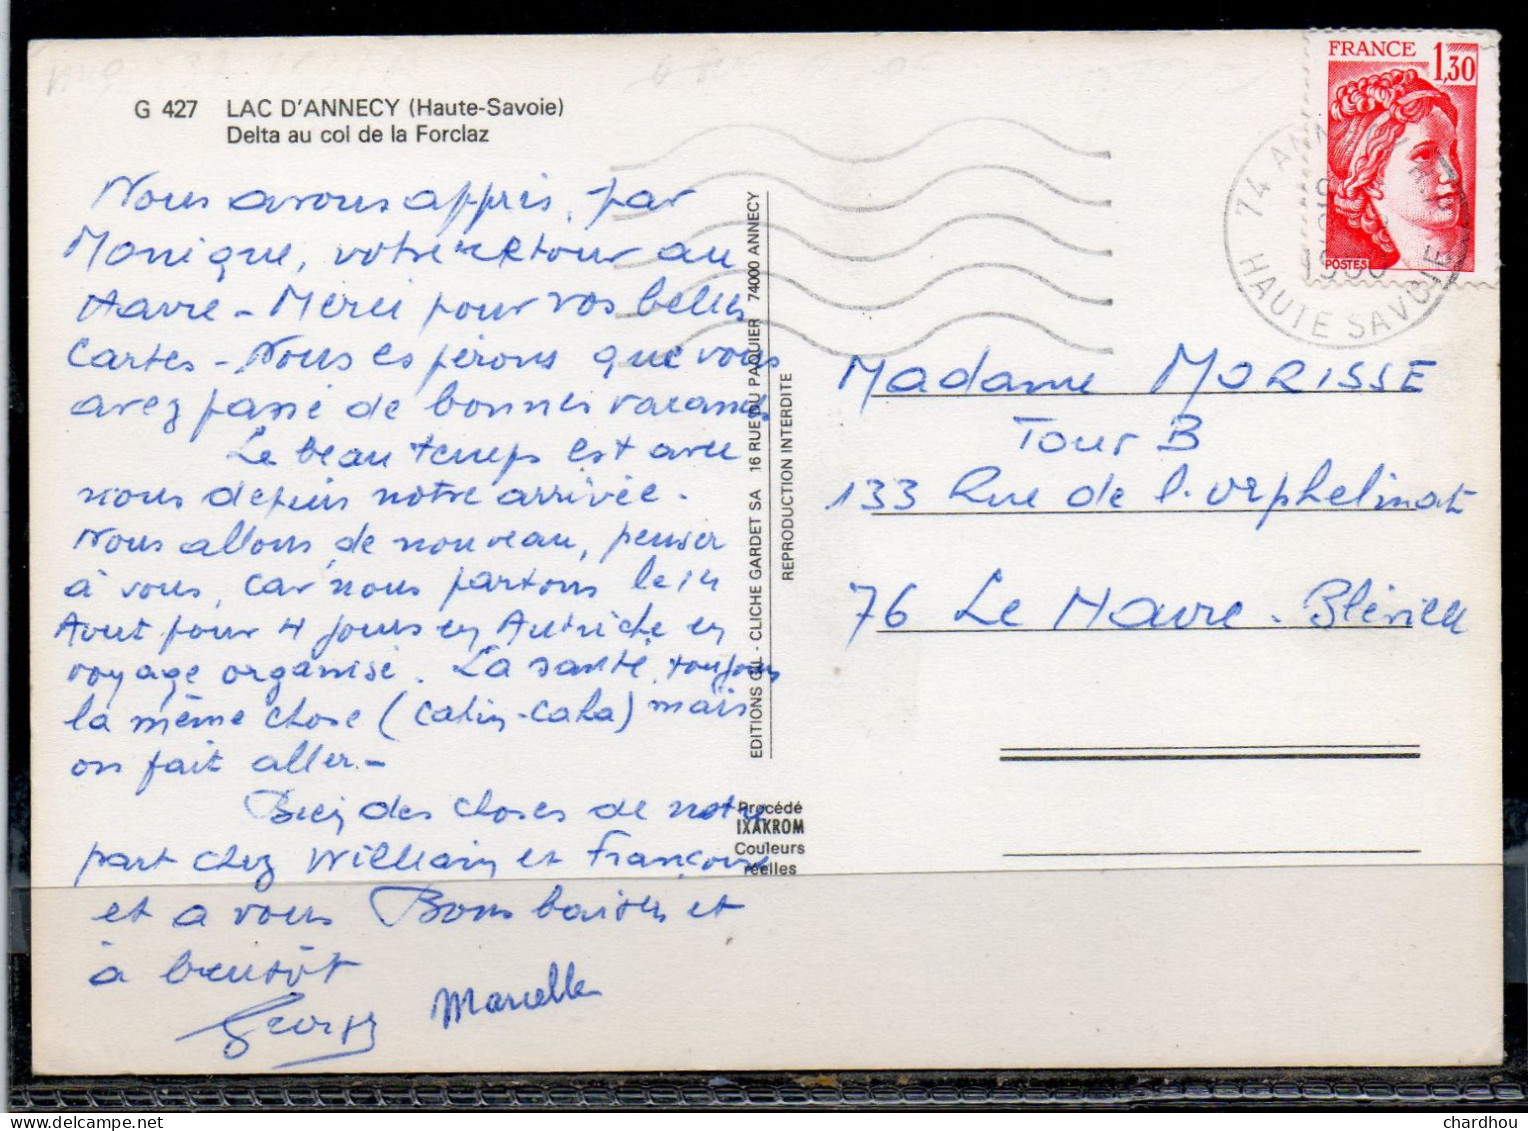 G 427 LAC D'ANNECY (Haute-Savoie)
Delta au col de la Forclaz
Nous avons appris, par
Monique, votre retour au
Havre - Merci pour vos belles
Cartes - Nous espérons que vous
avez passé de bonnes vacances
Le beau temps est avec
nous depuis notre arrivée.
Nous allons, de nouveau, penser
à vous, car nous partons le 14
Aout pour 4 jours en Autriche en
voyage organisé. La santé, toujours
la même chose (Cahin-Caha) mais
on fait aller -
Bien des choses de notre
part chez William et Françoise
et a vous Bons baisers et
à bientôt
Georges Marcelle
EDITIONS GIL - CLICHE GARDET SA 16 RUE DU PAQUIER 74000 ANNECY
REPRODUCTION INTERDITE
Procédé
IXAKROM
Couleurs
réelles
FRANCE 1,30
POSTES
74 AN
1980
HAUTE SAVOIE
Madame MORISSE
Tour B
133 Rue de l'orphelinat
76 Le Havre - Bléville
chardhou